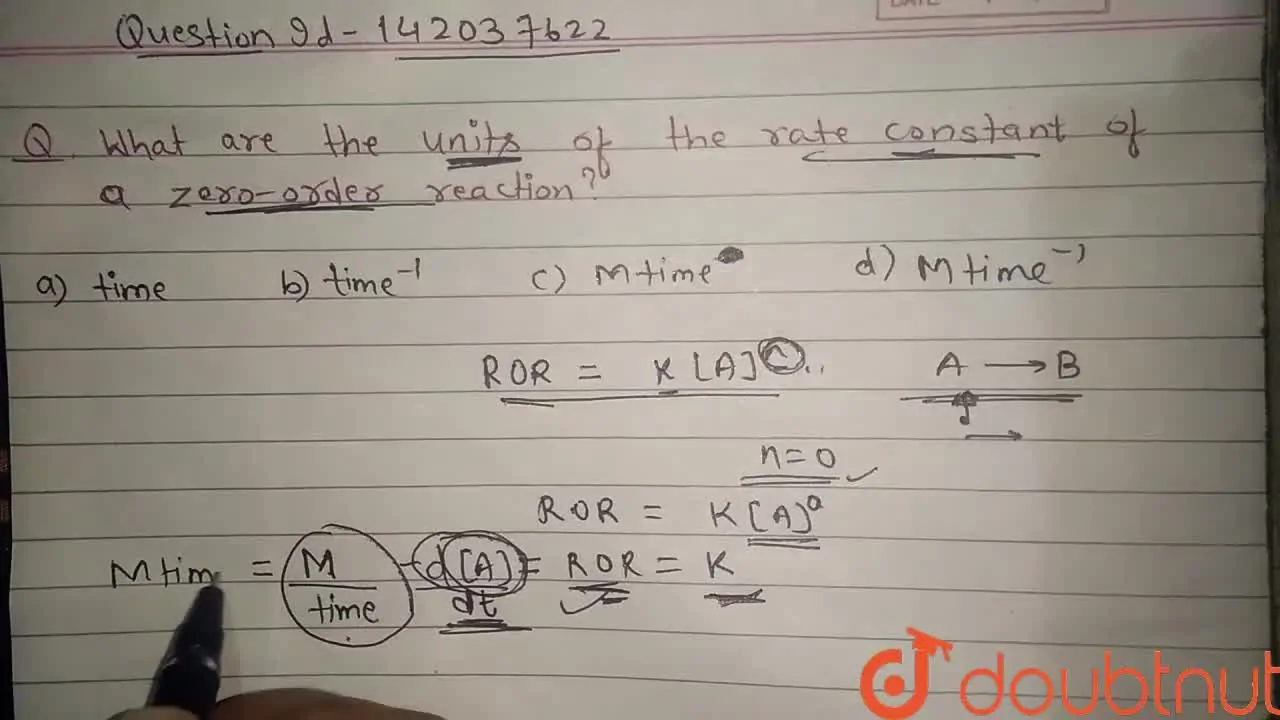 DATE
Question Id - 142037622
Q. What are the units of the rate constant of
a zero-order reaction?
a) time b) time⁻¹ c) M time d) M time⁻¹
ROR = K [A]ⁿ.. A → B
n = 0
ROR = K [A]⁰
M tim = M/time - d[A]/dt = ROR = K
doubtnut